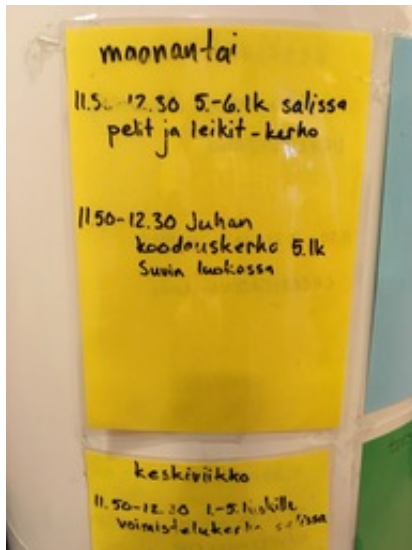 maanantai
11.50-12.30 5.-6.lk salissa
pelit ja leikit-kerho
11.50-12.30 Juhan
koodauskerho 5.lk
Suvin luokassa
keskiviikko
11.50-12.30 1.-5.luokille
voimistelukerho salissa